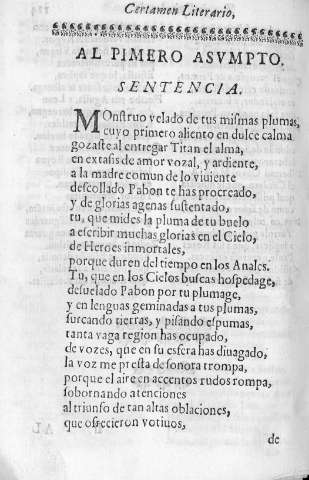 Certamen Literario,
AL PIMERO ASVMPTO.
SENTENCIA.
MOnſtruo velado de tus miſmas plumas,
cuyo primero aliento en dulce calma
gozaſte al entregar Titan el alma,
en extaſis de amor vozal, y ardiente,
a la madre comun de lo viuiente
deſcollado Pabon te has procreado,
y de glorias agenas ſuſtentado,
tu, que mides la pluma de tu buelo
a eſcribir muchas glorias en el Cielo,
de Heroes inmortales,
porque duren del tiempo en los Anales.
Tu, que en los Cielos buſcas hoſpedage,
deſuelado Pabon por tu plumage,
y en lenguas geminadas a tus plumas,
ſurcando tierras, y piſando eſpumas,
tanta vaga region has ocupado,
de vozes, que en ſu esfera has diuagado,
la voz me preſta de ſonora trompa,
porque el aire en accentos rudos rompa,
ſobornando atenciones
al triunfo de tan altas oblaciones,
que ofrecieron votiuos,
de